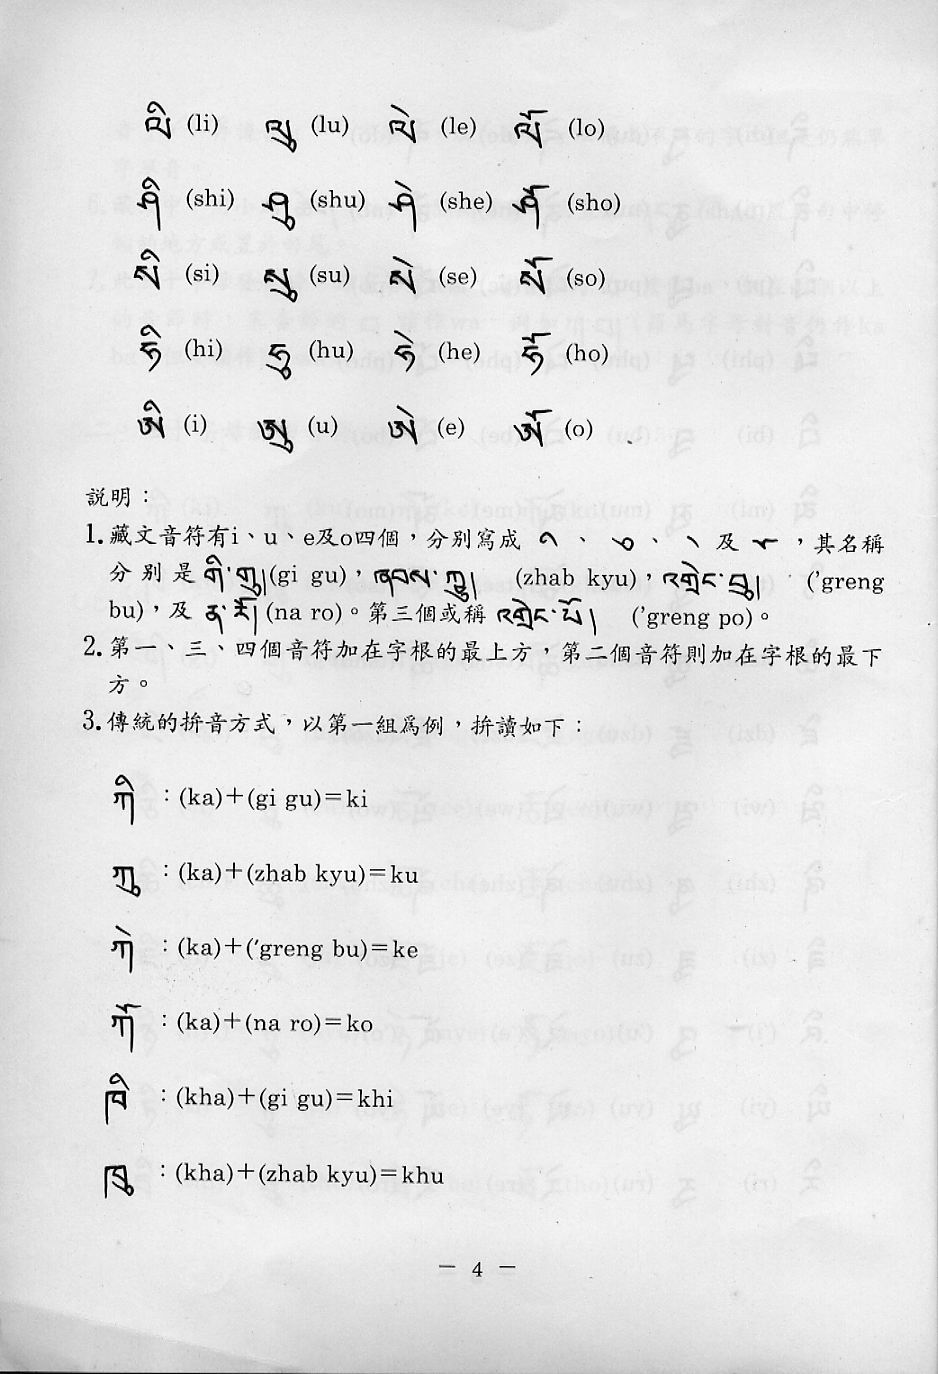 ལི (li) ལུ (lu) ལེ (le) ལོ (lo)
ཤི (shi) ཤུ (shu) ཤེ (she) ཤོ (sho)
སི (si) སུ (su) སེ (se) སོ (so)
ཧི (hi) ཧུ (hu) ཧེ (he) ཧོ (ho)
ཨི (i) ཨུ (u) ཨེ (e) ཨོ (o)
説明：
1.藏文音符有i、u、e及o四個，分別寫成 ི 、 ུ 、 ེ 及 ོ ，其名稱
分別是གི་གུ།(gi gu)，ཞབས་ཀྱུ། (zhab kyu)，འགྲེང་བུ། ('greng
bu)，及ན་རོ།(na ro)。第三個或稱འགྲེང་པོ། ('greng po)。
2.第一、三、四個音符加在字根的最上方，第二個音符則加在字根的最下
方。
3.傳統的拚音方式，以第一組爲例，拚讀如下：
ཀི ：(ka)＋(gi gu)＝ki
ཀུ ：(ka)＋(zhab kyu)＝ku
ཀེ ：(ka)＋('greng bu)＝ke
ཀོ ：(ka)＋(na ro)＝ko
ཁི ：(kha)＋(gi gu)＝khi
ཁུ ：(kha)＋(zhab kyu)＝khu
－ 4 －